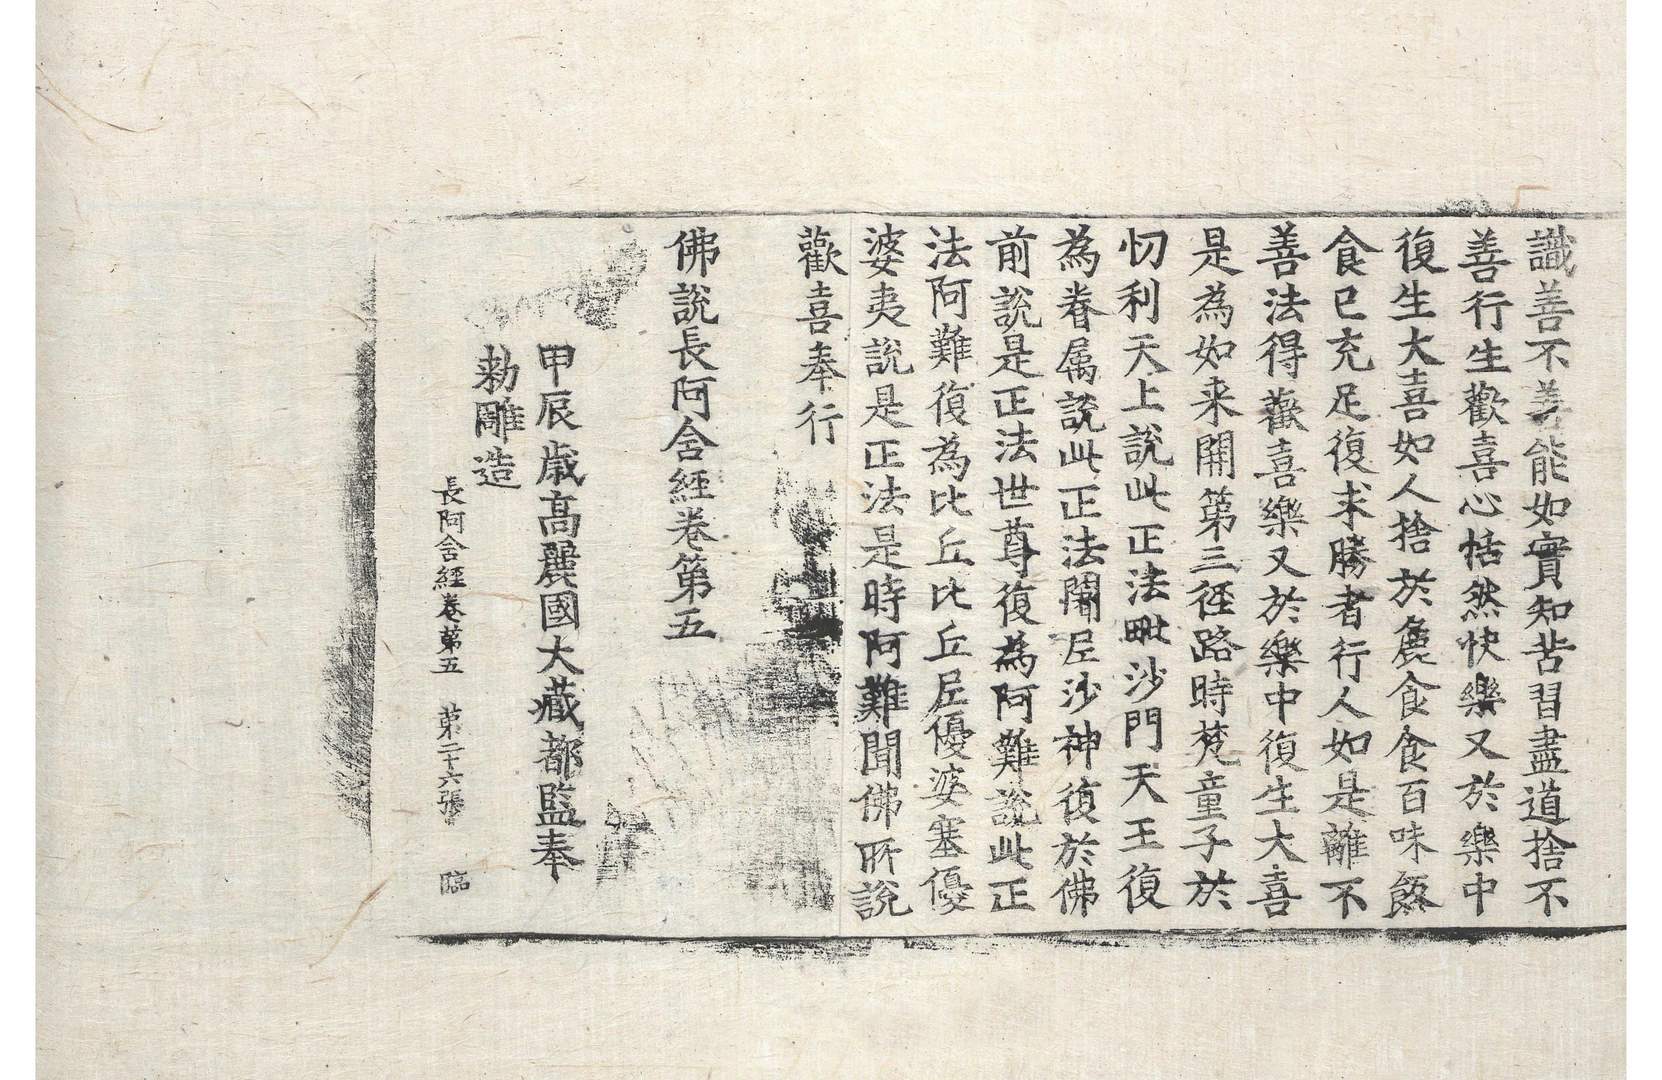 識善不善能如實知苦習盡道捨不
善行生歡喜心恬然快樂又於樂中
復生大喜如人捨於麁食食百味飯
食已充足復求勝者行人如是離不
善法得歡喜樂又於樂中復生大喜
是為如来開第三徑路時梵童子於
忉利天上說此正法毗沙門天王復
為眷属說此正法闍尼沙神復於佛
前說是正法世尊復為阿難說此正
法阿難復為比丘比丘尼優婆塞優
婆夷說是正法是時阿難聞佛所說
歡喜奉行
佛說長阿含經卷第五
甲辰歲高麗國大藏都監奉
勑雕造
長阿含經卷第五 第二十六張 臨